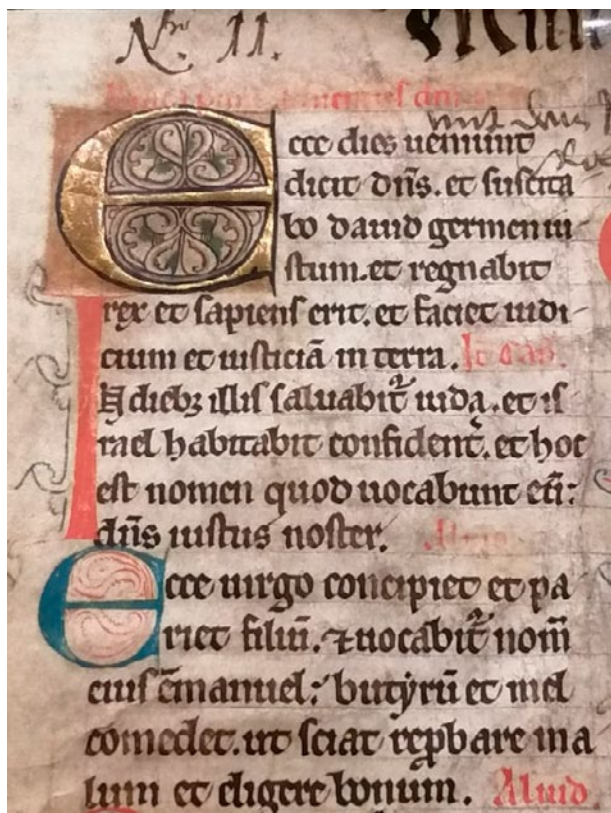 Nr. 11.
Ecce dies ueniunt
dicit dn̄s. et suscita
bo dauid germen iu
stum. et regnabit
rex et sapiens erit. et faciet iudi-
cium et iusticiā in terra.
In diebꝫ illis saluabit᷑ iuda. et is-
rael habitabit confident᷑. et hoc
est nomen quod uocabunt eū:
dn̄s iustus noster.
Ecce uirgo concipiet et pa
riet filiū. ⁊ uocabit᷑ nom̄
eius em̄anuel: butyrū et mel
comedet. ut sciat rep̱bare ma
lum et eligere bonum. Aliud